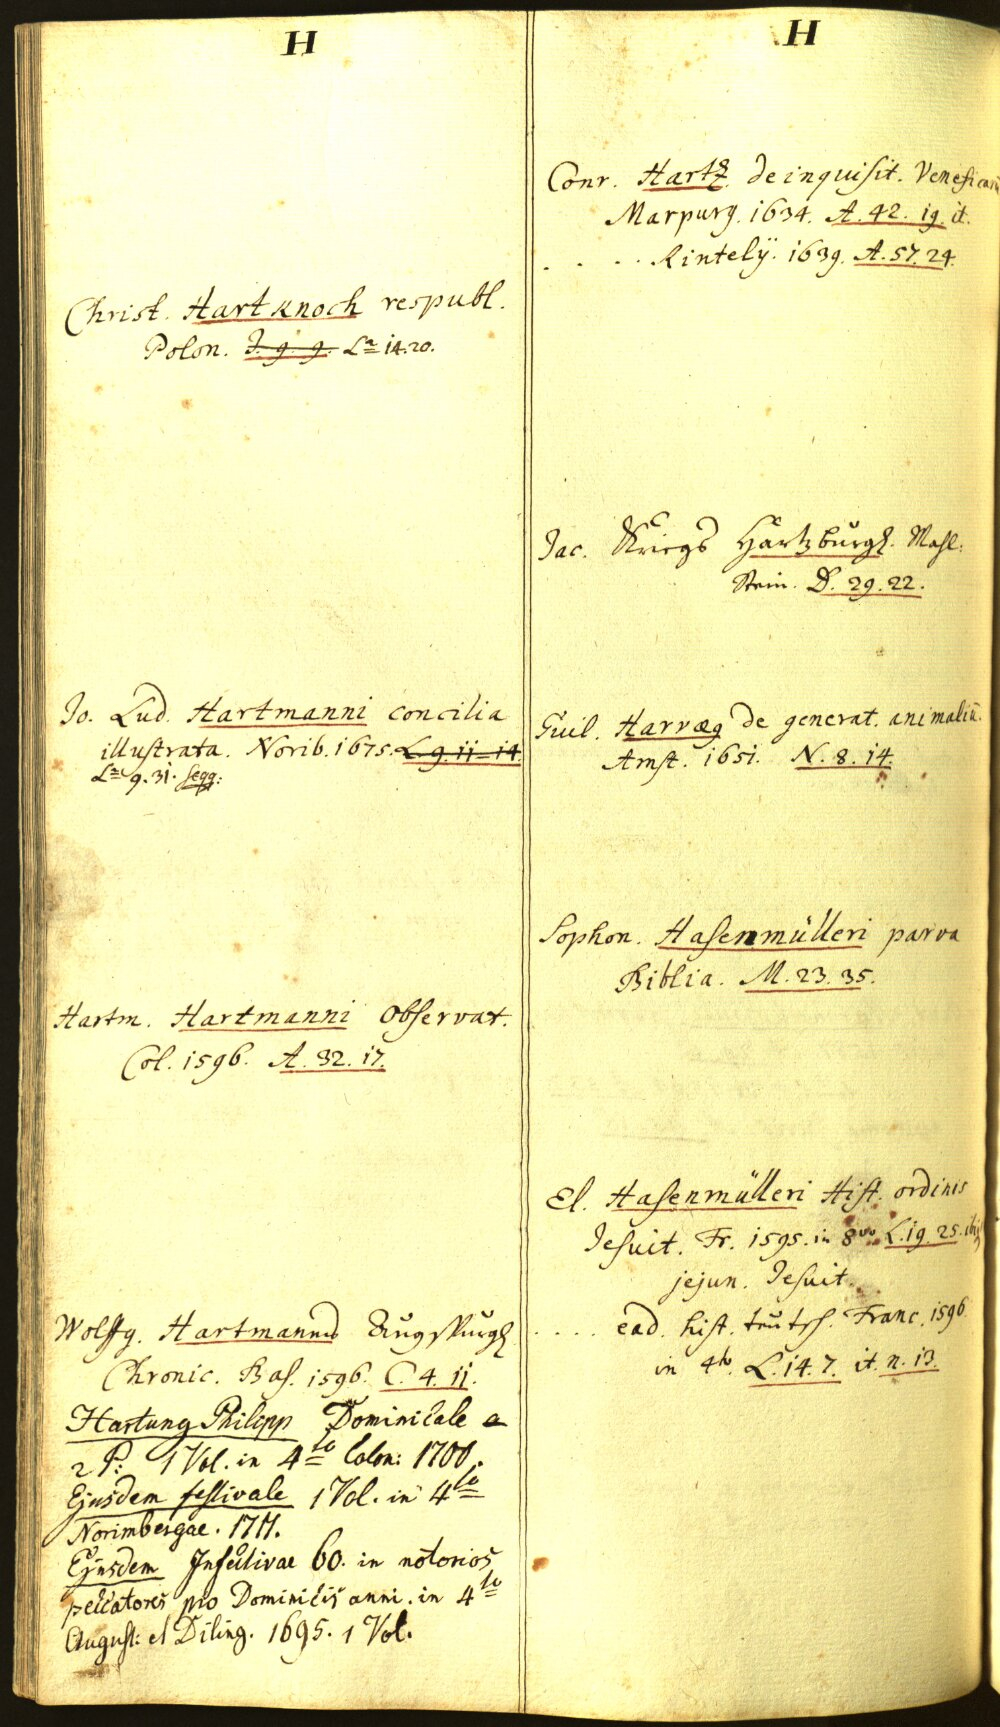 H
Christ. Hartknoch respubl.
Polon. J. 9. 9. La 14.20.
Jo. Lud. Hartmanni concilia
illustrata. Norib. 1675. L. 9. 11-14.
La 9. 31. seqq:
Hartm. Hartmanni Observat.
Col. 1596. A. 32. 17.
Wolffg. Hartmanns Augspurgl.
Chronic. Bas. 1596. C. 4. 11.
Hartung Philipp Dominicale
2 P: 1 Vol. in 4to Colon: 1700.
Ejusdem festivale 1 Vol. in 4to
Norimbergae. 1711.
Ejusdem 60. in notorios
peccatores pro Dominicis anni. in 4to
August: et Diling. 1695. 1 Vol.
H
Conr. Hartz. de inquisit. Veneficarū
Marpurg. 1634. A. 42. 19. it.
. . . . Rintelÿ. 1639. A. 57. 24.
Jac. Kriegs Hartzburgl. Mahl:
Stein. D. 29. 22.
Guil. Harvæg de generat. animaliū.
Amst. 1651. N. 8. 14.
Sophon. Hasenmülleri parva
Biblia. M. 23. 35.
El. Hasenmülleri Hist. ordinis
Jesuit. Fr. 1595. in 8vo L. 19. 25.
jejun. Jesuit.
. . . . ead. hist. teutsch. Franc. 1596.
in 4to. L. 14. 7. it. n. 13.